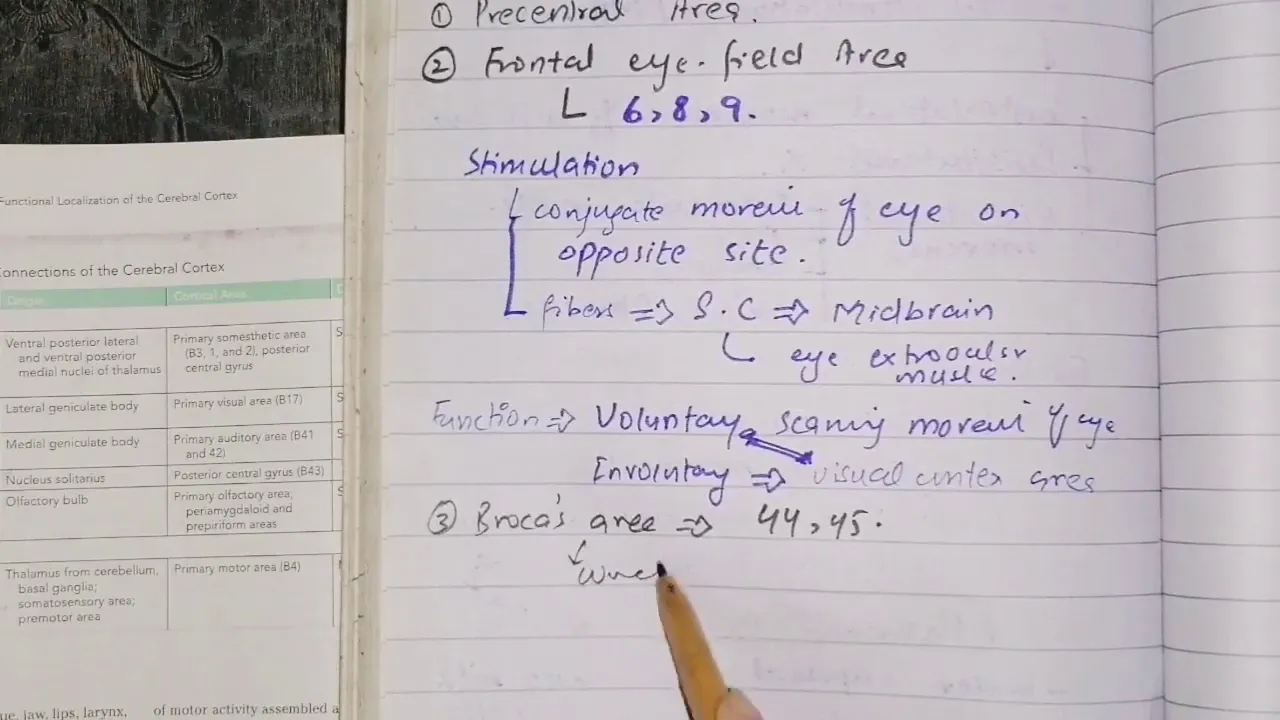 ① Precentral Area.
② Frontal eye. field Area
6, 8, 9.
Stimulation
conjugate movem of eye on
opposite site.
fibers ⇒ S.C ⇒ Midbrain
eye extraocular
muscle.
Function ⇒ Voluntary scaning movem of eye
Involutary ⇒ visual cortex area
③ Broca's area ⇒ 44, 45.
Functional Localization of the Cerebral Cortex
onnections of the Cerebral Cortex
Origin Cortical Area D
Ventral posterior lateral
and ventral posterior
medial nuclei of thalamus
Primary somesthetic area
(B3, 1, and 2), posterior
central gyrus
S
Lateral geniculate body Primary visual area (B17) S
Medial geniculate body
Primary auditory area (B41
and 42)
S
Nucleus solitarius Posterior central gyrus (B43)
Olfactory bulb
Primary olfactory area;
periamygdaloid and
prepiriform areas
S
Thalamus from cerebellum,
basal ganglia;
somatosensory area;
premotor area
Primary motor area (B4)
ue, jaw, lips, larynx,
of motor activity assembled a